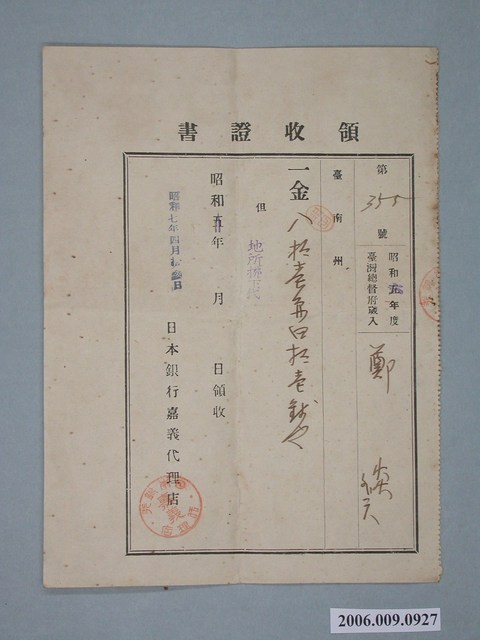 領收證書
第355號
昭和 年度
臺灣總督府歲入
鄭
臺南州
一金八拾壹圓四拾壹錢也
但
地所拂下代
昭和 年 月 日領收
昭和七年四月 日
日本銀行嘉義代理店
嘉義
2006.009.0927